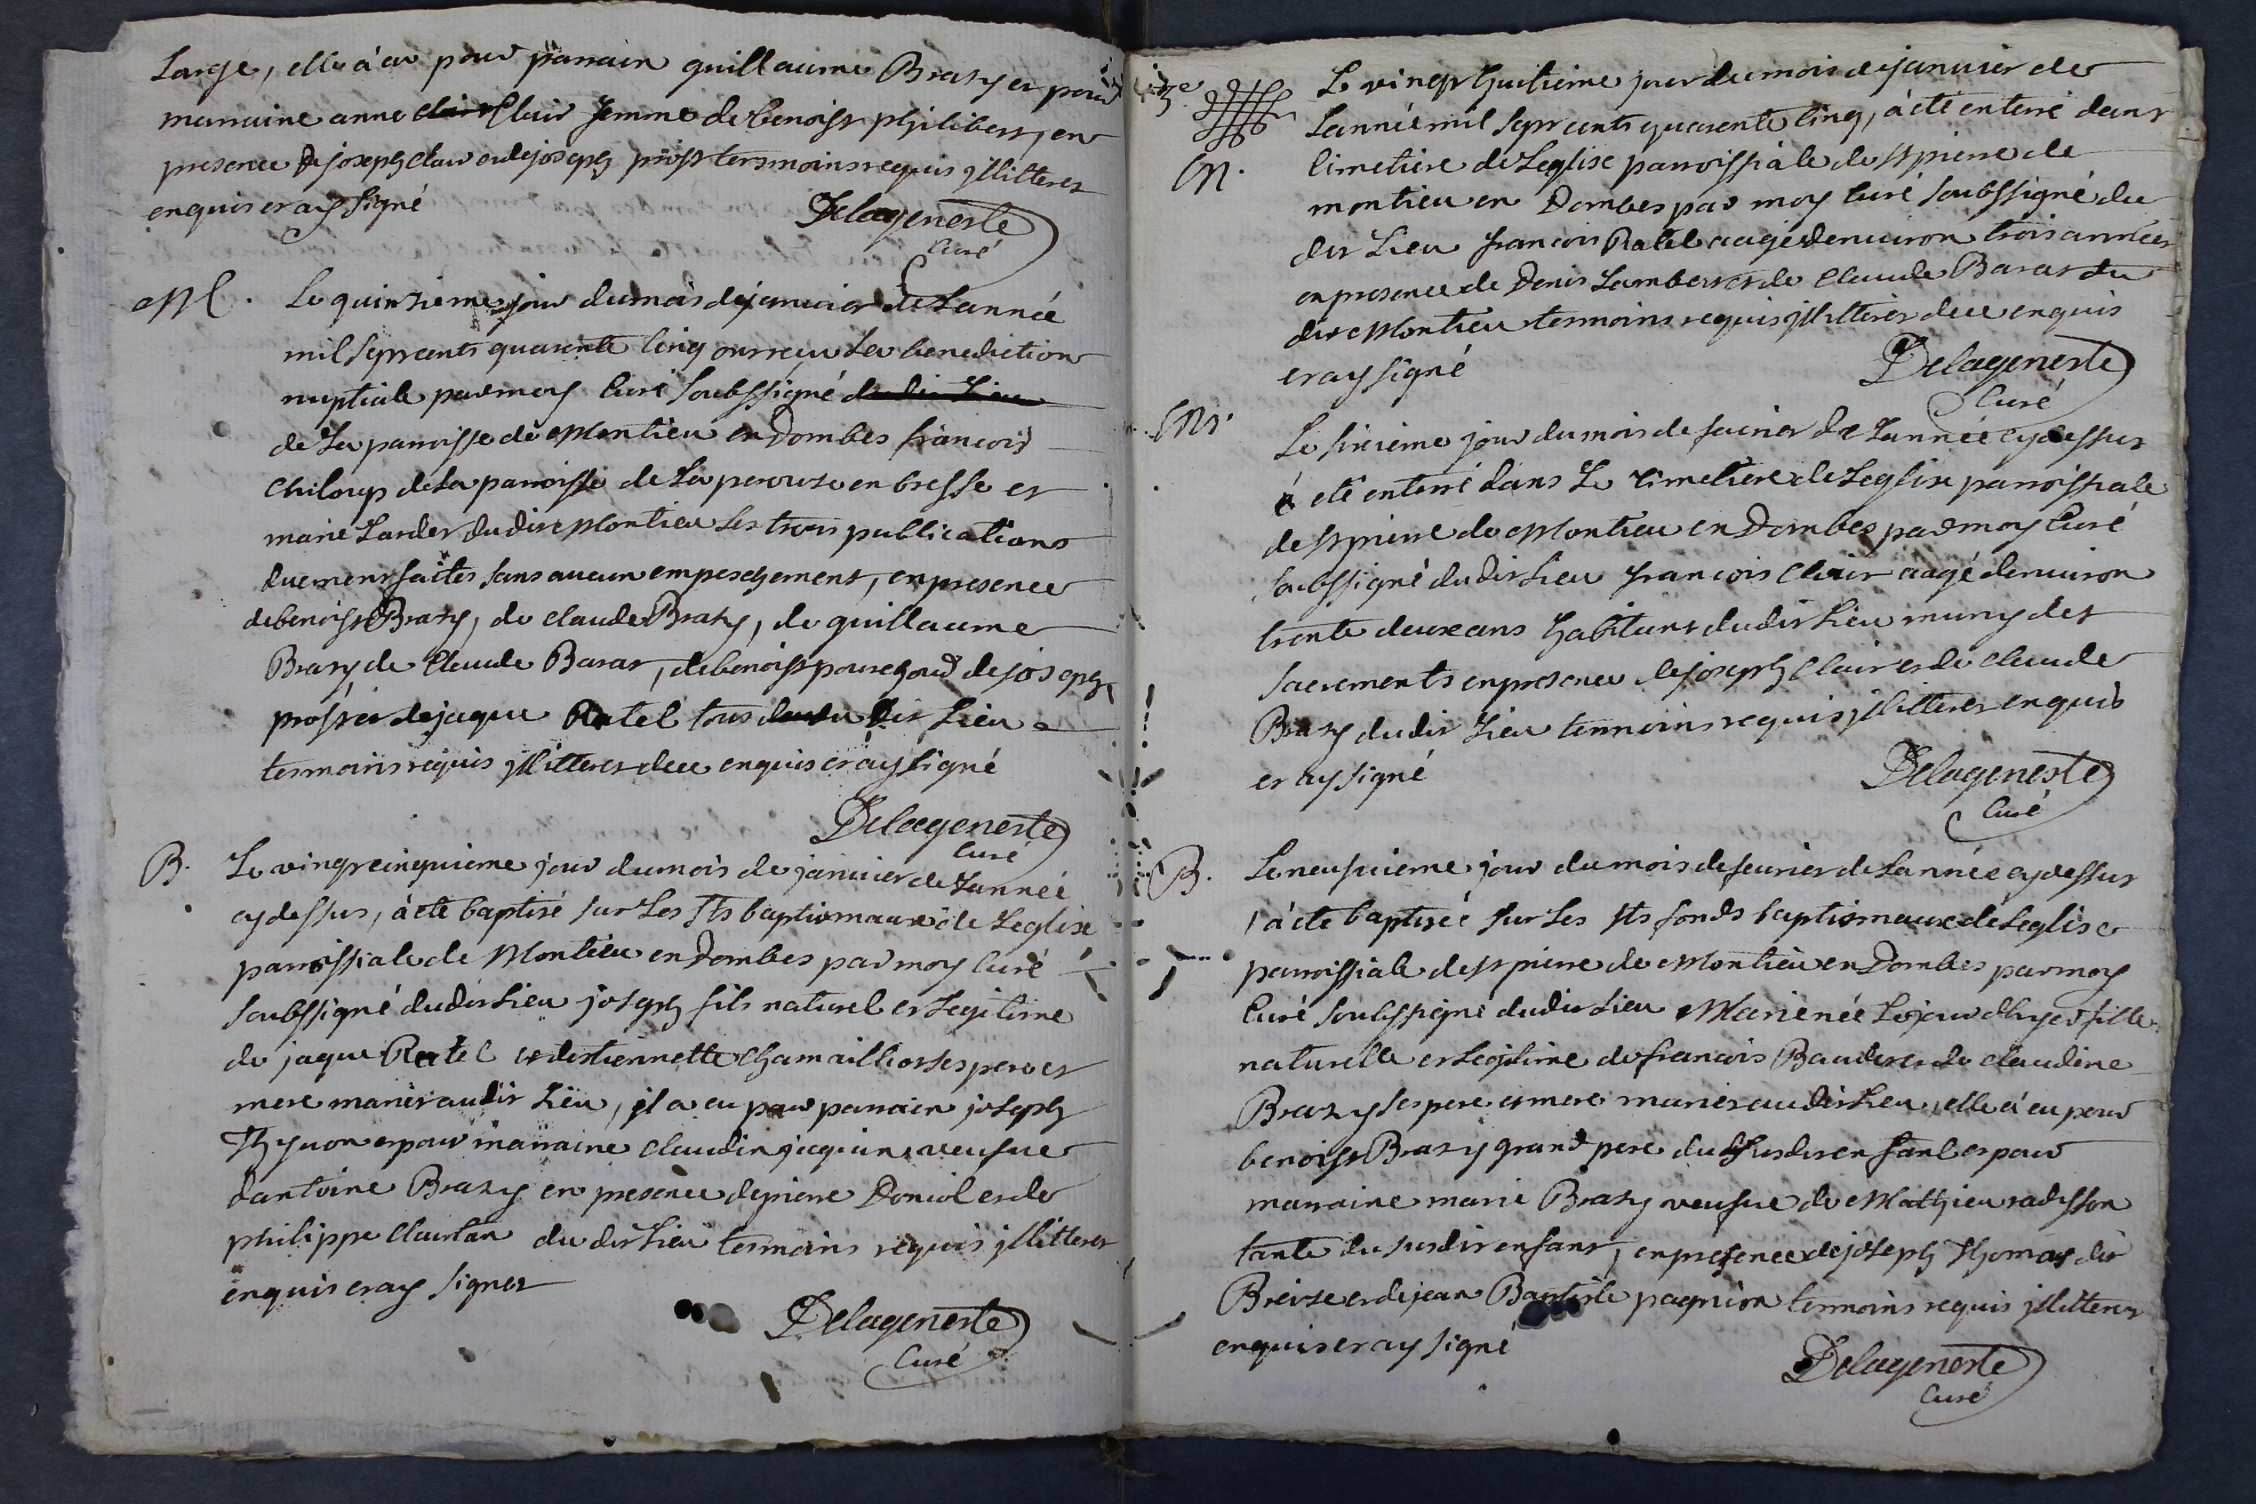 Large, elle à eu pour parrain guillaume Brazy et pour
marraine anne Clair femme de benoist philibert, en
presence de joseph clair et de joseph prost tesmoins requis jllitteres
enquis et ay signé
Delageneste
Curé
M. Le quinzieme jour du mois de janvier de Lannée
mil sept cents quarente cinq ont reçu La benediction
nuptiale par moy Curé soubssigné du dit Lieu
de La parroisse de Montieu en Dombes françois
Chiloup de La parroisse de La perouze en bresse et
marie Larder du dit Montieu Les trois publications
duement faites sans aucun empeschement, en presence
de benoist Brazy, de claude Brazy, de guillaume
Brazy de Claude Barat, de benoist de joseph
prost et de jaque Ratel tous du dit Lieu
tesmoins requis jllitteres de ce enquis et ay signé
Delageneste
Curé
B. Le vingt cinquieme jour du mois de janvier de Lannéé
cy dessus, à eté baptisé sur Les fts baptismaux de Leglise
parroissiale de Montieu en Dombes par moy Curé
soubssigné du dit Lieu joseph fils naturel et Legitime
de jaque Ratel et destiennette Chamaillior ses pere et
mere mariés au dit Lieu, jl a eu pour parrain joseph
Thyuon et pour marraine claudine jaquin veufue
dantoine Brazy en presence de pierre Doniol et de
philippe Clauitan du dit Lieu tesmoins requis jllitteres
enquis et ay signer
Delageneste
Curé
3e
M. Le vingt huitieme jour du mois de janvier de
Lannée mil sept cents quarente cinq, à eté enterré dans
Cimetiere de Leglise parroissiale de st pierre de
montieu en Dombes par moy Curé soubssigné du
dit Lieu francois Ratel aagé denuiron trois années
en presence de Denis Lambert et de Claude Barat du
dit Montieu tesmoins requis jllitteres de ce enquis
et ay signé
Delageneste
Curé
M. Le sixieme jour du mois de feurier de Lannée cy dessus
à eté enterré dans Le Cimetiere de Leglise parroissiale
de st pierre de Montieu en Dombes par moy Curé
soubssigné du dit Lieu francois Clair aagé denuiron
trente deux ans habitant du dit Lieu muny des
sacrements en presence de joseph Clair et de claude
Brazy du dit Lieu tesmoins requis jllitteres enquis
et ay signé
Delageneste
Curé
B. Le neufuieme jour du mois de feurier de Lannée cy dessus
à eté baptisée sur Les sts fonds baptismaux de Leglise
parroissiale de st pierre de Montieu en Dombes par moy
Curé soubssigné du dit Lieu Marie née Le jour dhyer fille
naturelle et Legitime de francois Baudet et de claudine
Brazy ses pere et mere mariés au dit Lieu, elle à eu pour
benoist Brazy grand pere du susdit enfant et pour
marraine marie Brazy veufue de Mathieu radisson
tante du susdit enfant, en presence de joseph Thomas dit
Breize et de jean Baptiste pagnion tesmoins requis jllitteres
enquis et ay signé
Delageneste
Curé